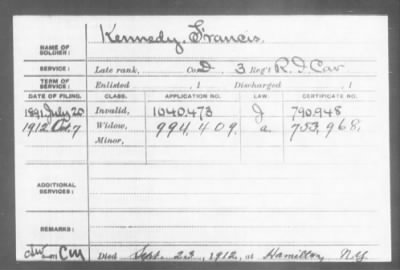 NAME OF SOLDIER: Kennedy, Francis.
SERVICE: Late rank, Co. D, 3 Reg't R. I. Cav
TERM OF SERVICE: Enlisted , 1 Discharged , 1
DATE OF FILING. CLASS. APPLICATION NO. LAW. CERTIFICATE NO.
1891 July 20 Invalid, 1040,473 J 790,948
1912 Oct. 7 Widow, 994,409. a. 753,968.
Minor,
ADDITIONAL SERVICES:
REMARKS:
CM Died Sept. 23, 1912, at Hamilton, N.Y.